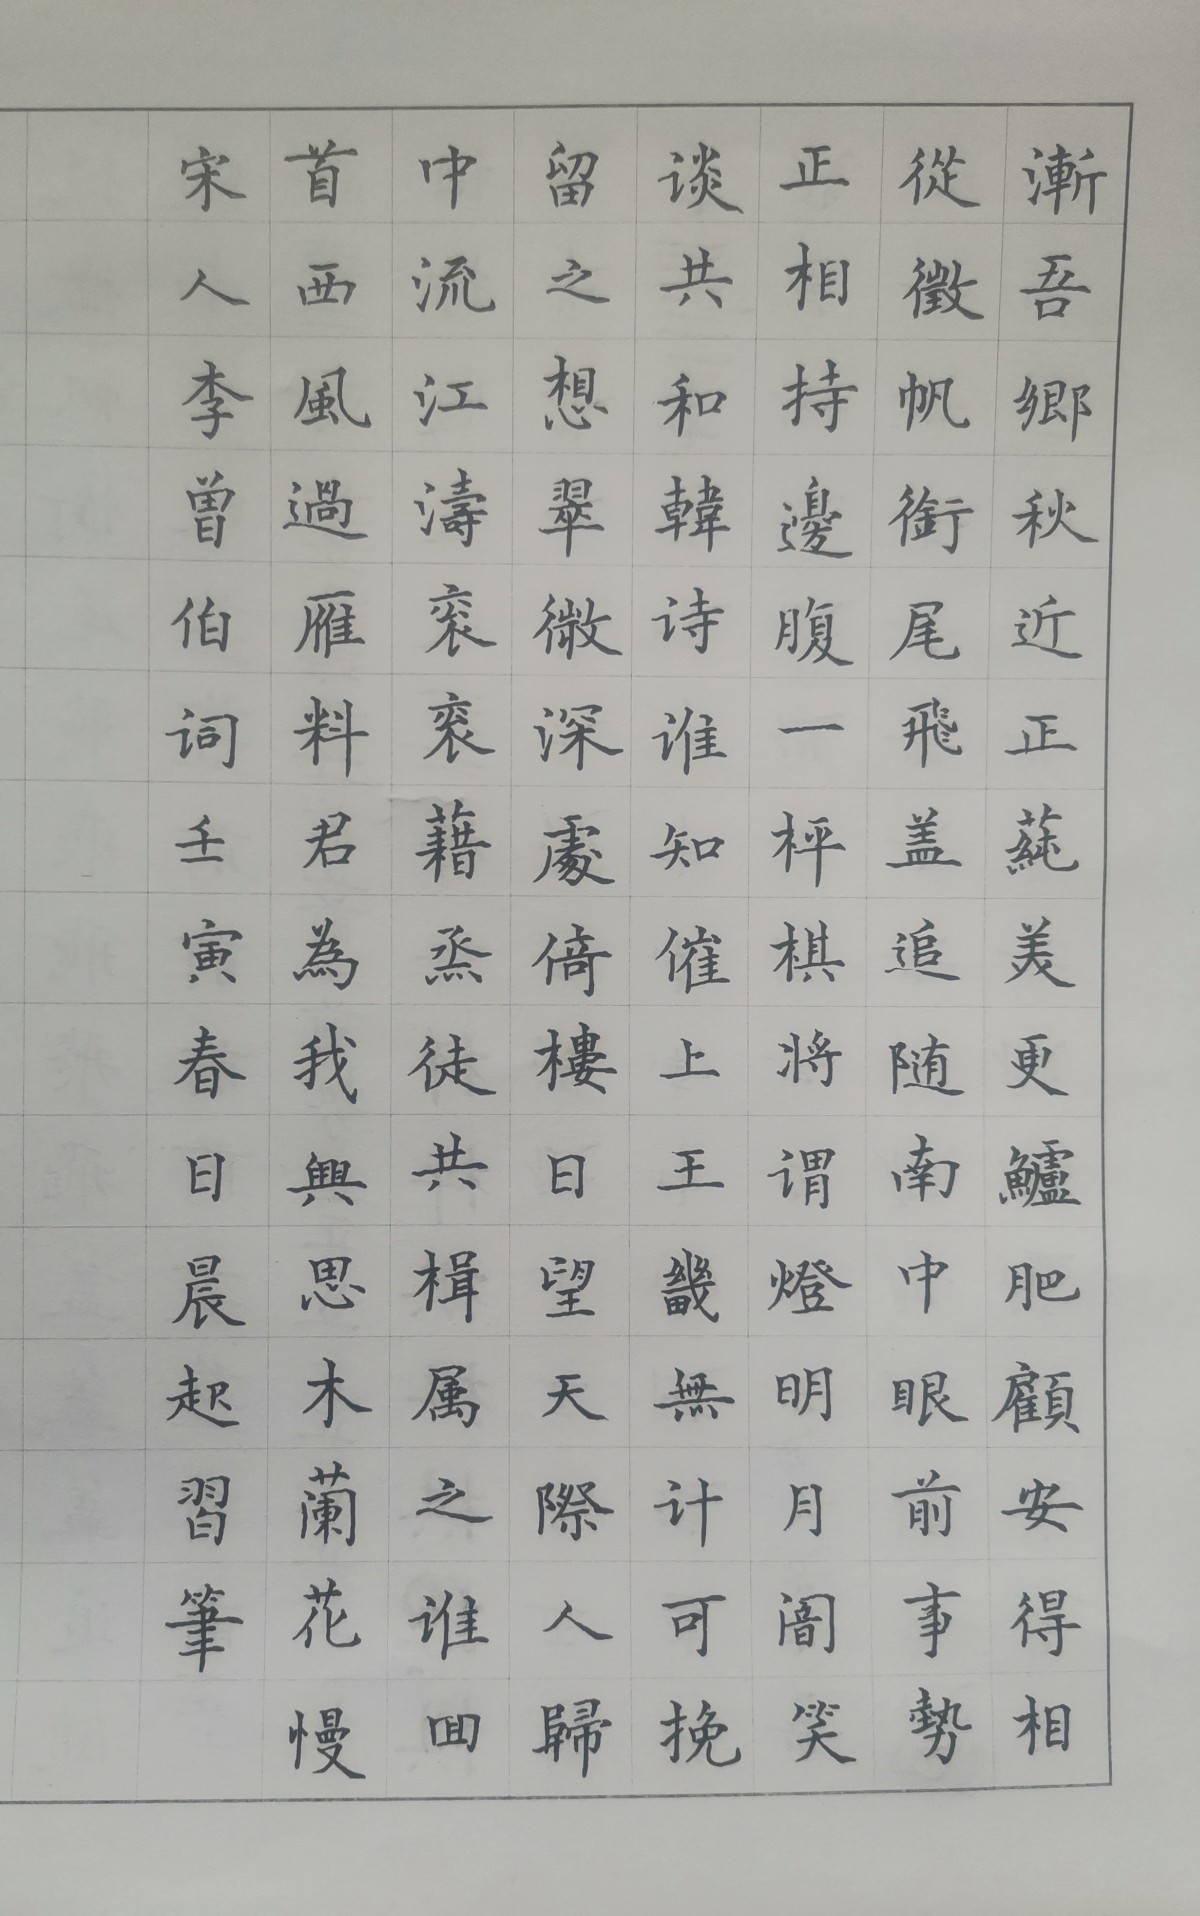 漸吾鄉秋近正蒓美更鱸肥顧安得相
從徵帆銜尾飛盖追随南中眼前事勢
正相持邊腹一枰棋將谓燈明月闇笑
谈共和韓诗谁知催上王畿無计可挽
留之想翠微深處倚樓日望天際人歸
中流江濤衮衮藉烝徒共楫属之谁回
首西風過雁料君為我興思木蘭花慢
宋人李曾伯词壬寅春日晨起習筆